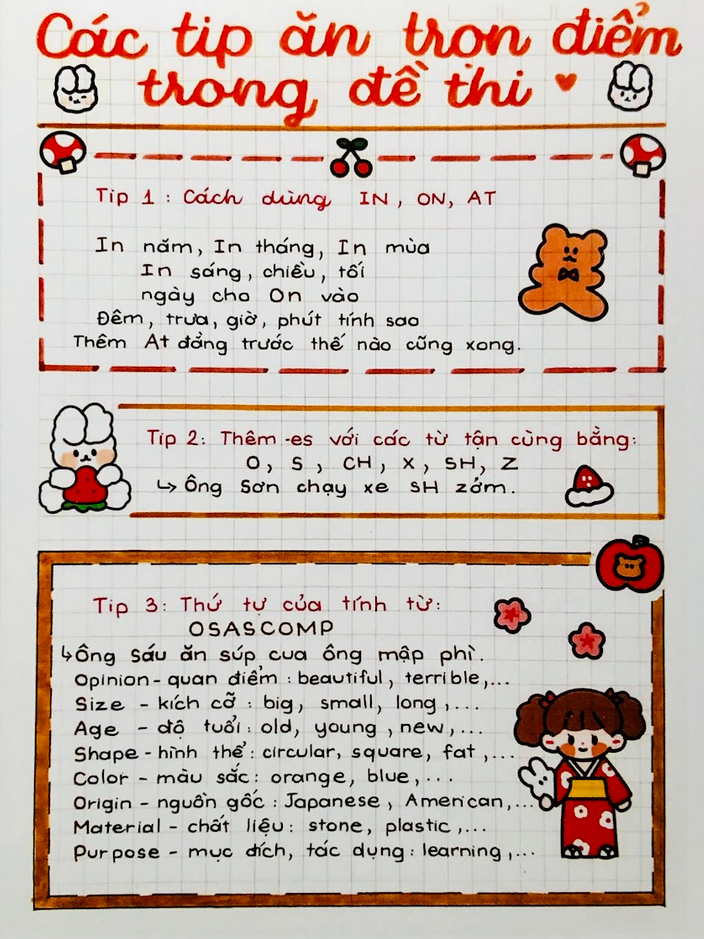 Các tip ăn trọn điểm
trong đề thi
Tip 1: Cách dùng IN, ON, AT
In năm, In tháng, In mùa
In sáng, chiều, tối
ngày cho On vào
Đêm, trưa, giờ, phút tính sao
Thêm At đằng trước thế nào cũng xong.
Tip 2: Thêm -es với các từ tận cùng bằng:
O, S, CH, X, SH, Z
↳ Ông Sơn chạy xe SH zởm.
Tip 3: Thứ tự của tính từ:
OSASCOMP
↳Ông Sáu ăn súp cua ông mập phì.
Opinion - quan điểm: beautiful, terrible,...
Size - kích cỡ: big, small, long,...
Age - độ tuổi: old, young, new,...
Shape - hình thể: circular, square, fat,...
Color - màu sắc: orange, blue,...
Origin - nguồn gốc: Japanese, American,...
Material - chất liệu: stone, plastic,...
Purpose - mục đích, tác dụng: learning,...